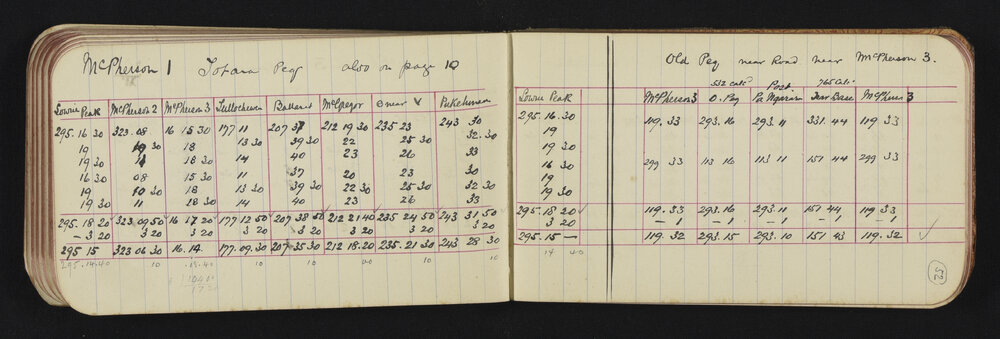 McPherson 1 Totara Peg also on page 10
Lowrie Peak McPherson 2 McPherson 3 Tullochewen Ballarat McGregor Omear V Pukehuru
295.16 30 323 08 16 15 30 177 11 207 37 212 19 30 235 23 243 30
19 30 18 13 30 39 30 22 25 30 32.30
19 30 11 18 30 14 40 23 26 33
16 30 08 15 30 11 37 20 23 30
19 10 30 18 13 30 39 30 22 30 25 30 32 30
19 30 11 18 30 14 40 23 26 33
295.18 20 323.09 50 16 17 20 177 12 50 207 38 50 212 21 40 235 24 50 243 31 50
— 3 20 3 20 3 20 3 20 3 20 3 20 3 20 3 20
295 15 323 06 30 16.14 177.09.30 207.35 30 212 18.20 235.21 30 243 28 30
295.14.40 10 10 10 10
Old Peg near Road near McPherson 3.
Post.
Lowrie Peak McPherson 3 O. Peg Base McPherson 3
295.16.30 119. 33 293.16 293.11 331.44 119 33
19
19 30
16 30 299 33 113 16 113 11 151 44 299 33
19
19 30
295.18 20 119.33 293.16 293.11 151 44 119 33
3 20 — 1 — 1 — 1 — 1 — 1
295.15 — 119.32 293.15 293.10 151 43 119.32
14 40
52